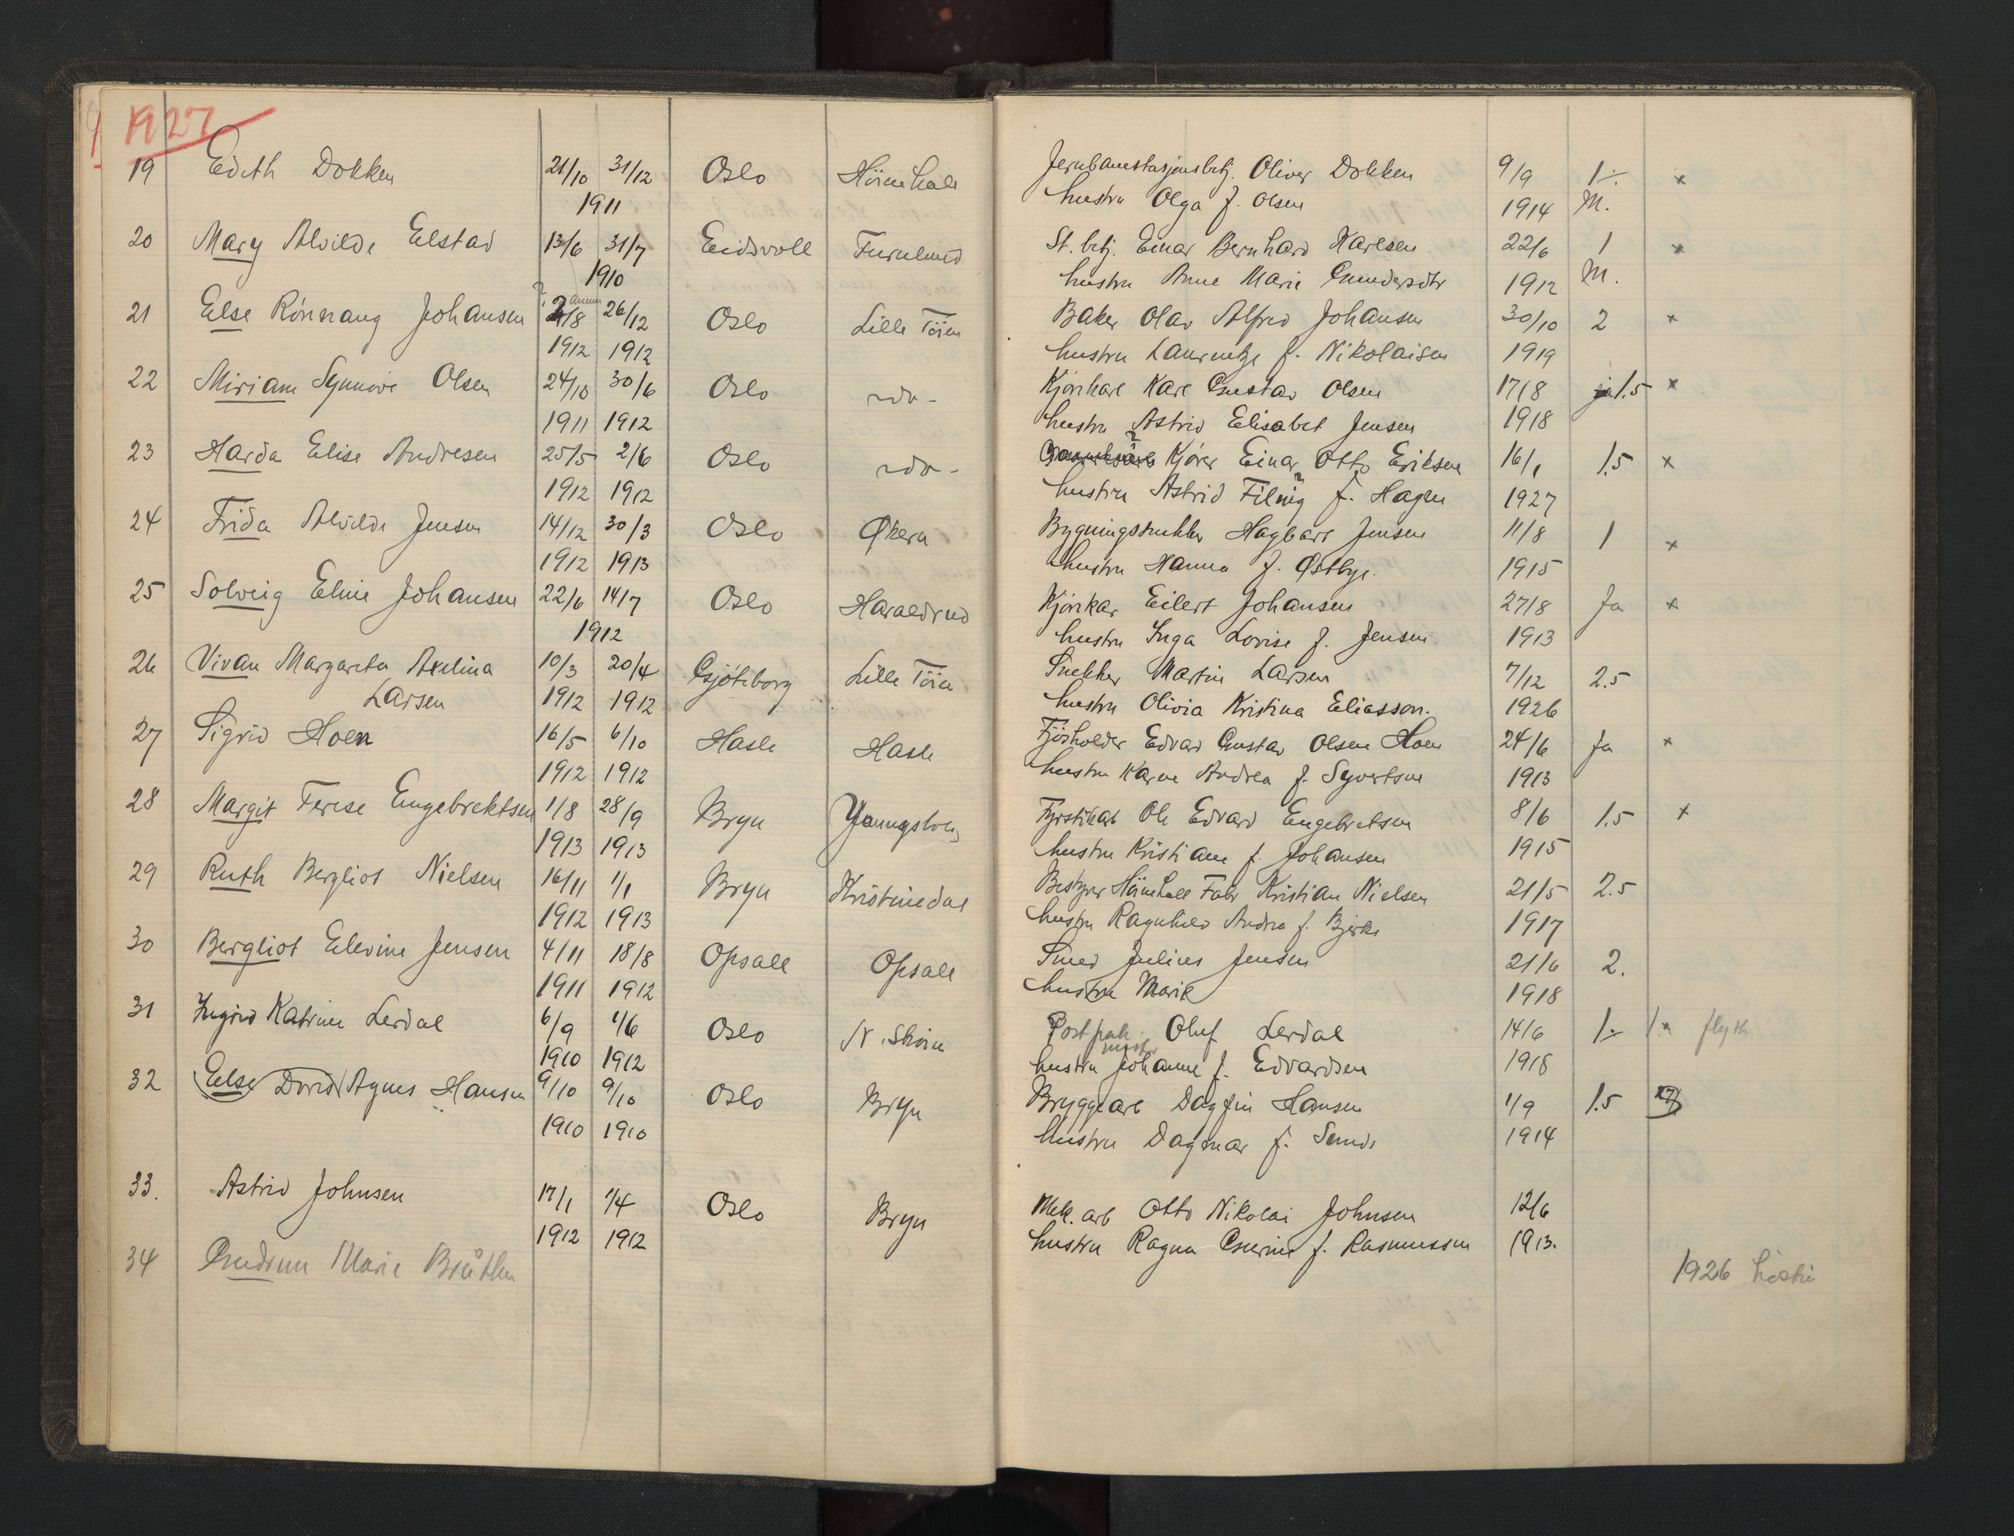 1927
19 Edith Dokken 21/10 31/12 Oslo Jernbanestasjonsbetj. Oliver Dokken 9/9 1 x
1911 hustru Olga f. Olsen 1914 M.
20 Mary Alvilde Elstad 13/6 31/7 Eidsvoll Furulund St. betj. Einar Bernhard Karlsen 22/6 1 x
1910 hustru Anne Marie Gundersdtr 1912 M.
21 Else Rönnaug Johansen 2/8 26/12 Oslo Lille Töien Baker Olav Alfred Johansen 30/10 2 x
1912 1912 hustru Laurentze f. Nikolaisen 1919
22 Miriam Synnöve Olsen 24/10 30/6 Oslo - do - Kjörekarl Karl Gustav Olsen 17/8 1.5 x
1911 1912 hustru Astrid Elisabet Jensen 1918
23 Harda Elise Andresen 25/5 2/6 Oslo - do - Kjörer Einar Otto Eriksen 16/1 1.5 x
1912 1912 hustru Astrid f. Hagen 1927
24 Frida Alvilde Jensen 14/12 30/3 Oslo Økern Bygningssnekker Hagbart Jensen 11/8 1 x
1912 1913 hustru Hanna f. Østbye. 1915
25 Solveig Eline Johansen 22/6 14/7 Oslo Haraldrud Kjörekar Eilert Johansen 27/8 Ja x
1912 hustru Inga Lovise f. Jensen 1913
26 Vivan Margareta Axelina 10/3 20/4 Gjöteborg Lille Töien Snekker Martin Larsen 7/12 2.5
Larsen 1912 1912 hustru Olivia Kristina Eliasson. 1926
27 Sigrid Hoen 16/5 6/10 Hasle Hasle Fjösholder Edvard Gustav Olsen Hoen 24/6 Ja x
1912 1912 hustru Karen Andrea f. Syvertsen 1913
28 Margit Terese Engebrektsen 1/8 28/9 Bryn Ole Edvard Engebretsen 8/6 1.5 x
1913 1913 hustru Kristiane f. Johansen 1915
29 Ruth Bergliot Nielsen 16/11 1/1 Bryn Kristinedal Bestyrer Höienhall Fabr Kristian Nielsen 21/5 2.5
1912 1913 hustru Ragnhild Andrea f. Bjerke 1917
30 Bergliot Elevine Jensen 4/11 18/8 Opsall Opsall Smed Julius Jensen 21/6 2.
1911 1912 hustru Marie 1918
31 Ingrid Katrine Lerdal 6/9 1/6 Oslo N. Skøien Oluf Lerdal 14/6 1 x flytt
1910 1912 hustru Johanne f. Edvardsen 1918
32 Else Dorid Agnes Hansen 9/10 9/10 Oslo Bryn Bryggearb Dagfin Hansen 1/9 1.5
1910 1910 hustru Dagmar f. Sunde 1914
33. Astrid Johnsen 17/1 1/4 Oslo Bryn Mek. arb Otto Nikolai Johnsen 12/6
1912 1912 hustru Ragna f. Rasmussen 1913.
34 Gudrun Marie Bråthen 1926 høsten